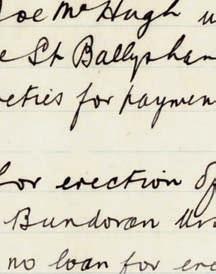 Joe McHugh
St Ballysha
for paymen
for erection of
Bundoran Ur
no loan for ere